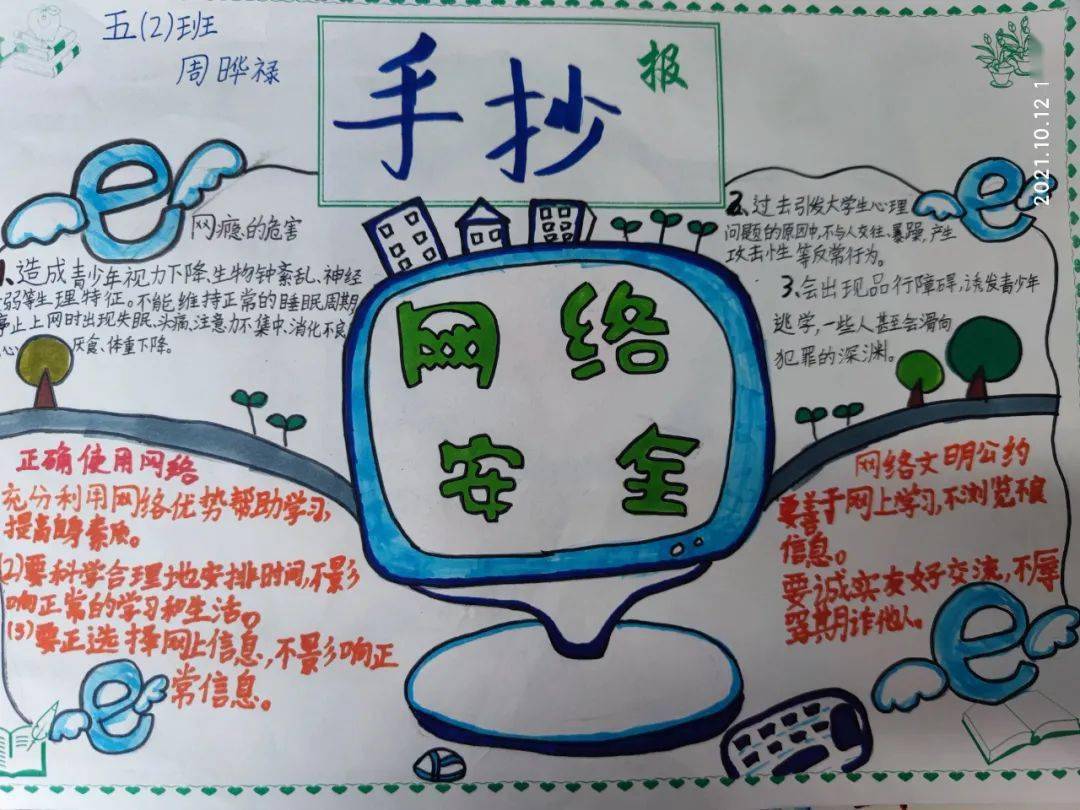 五(2)班
周晔禄
手抄
报
2021.10.12 1
网瘾的危害
1、造成青少年视力下降、生物钟紊乱、神经
弱等生理特征。不能维持正常的睡眠周期,
停止上网时出现失眠、头痛、注意力不集中、消化不良
心 厌食、体重下降。
2、过去引发大学生心理
问题的原因中,不与人交往、暴躁,产生
攻击性等反常行为。
3、会出现品行障碍,诱发青少年
逃学,一些人甚至会滑向
犯罪的深渊。
网络
安全
正确使用网络
充分利用网络优势帮助学习,
提高自身素质。
(2)要科学合理地安排时间,不影
响正常的学习和生活。
(3)要正选择网上信息,不影响正
常信息。
网络文明公约
要善于网上学习,不浏览不良
信息。
要诚实友好交流,不辱
骂期诈他人。